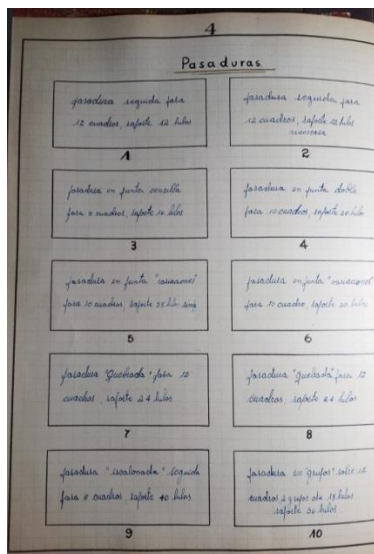 4
Pasaduras
pasadura seguida para
12 cuadros, rapporte 12 hilos
1
pasadura seguida para
12 cuadros, rapporte 12 hilos
inversa
2
pasadura en punta sencilla
para cuadros, rapporte hilos
3
pasadura en punta doble
para 10 cuadros, rapporte 20 hilos
4
pasadura en punta
para 10 cuadros, rapporte hilos
5
pasadura en punta
para 10 cuadros, rapporte hilos
6
pasadura "Quebrada" para 12
cuadros, rapporte 24 hilos
7
pasadura "Quebrada" para 12
cuadros, rapporte 24 hilos
8
pasadura "escalonada" seguida
para cuadros rapporte 40 hilos
9
pasadura en "grupos" sobre 12
cuadros 2 grupos de 18 hilos
rapporte 36 hilos
10